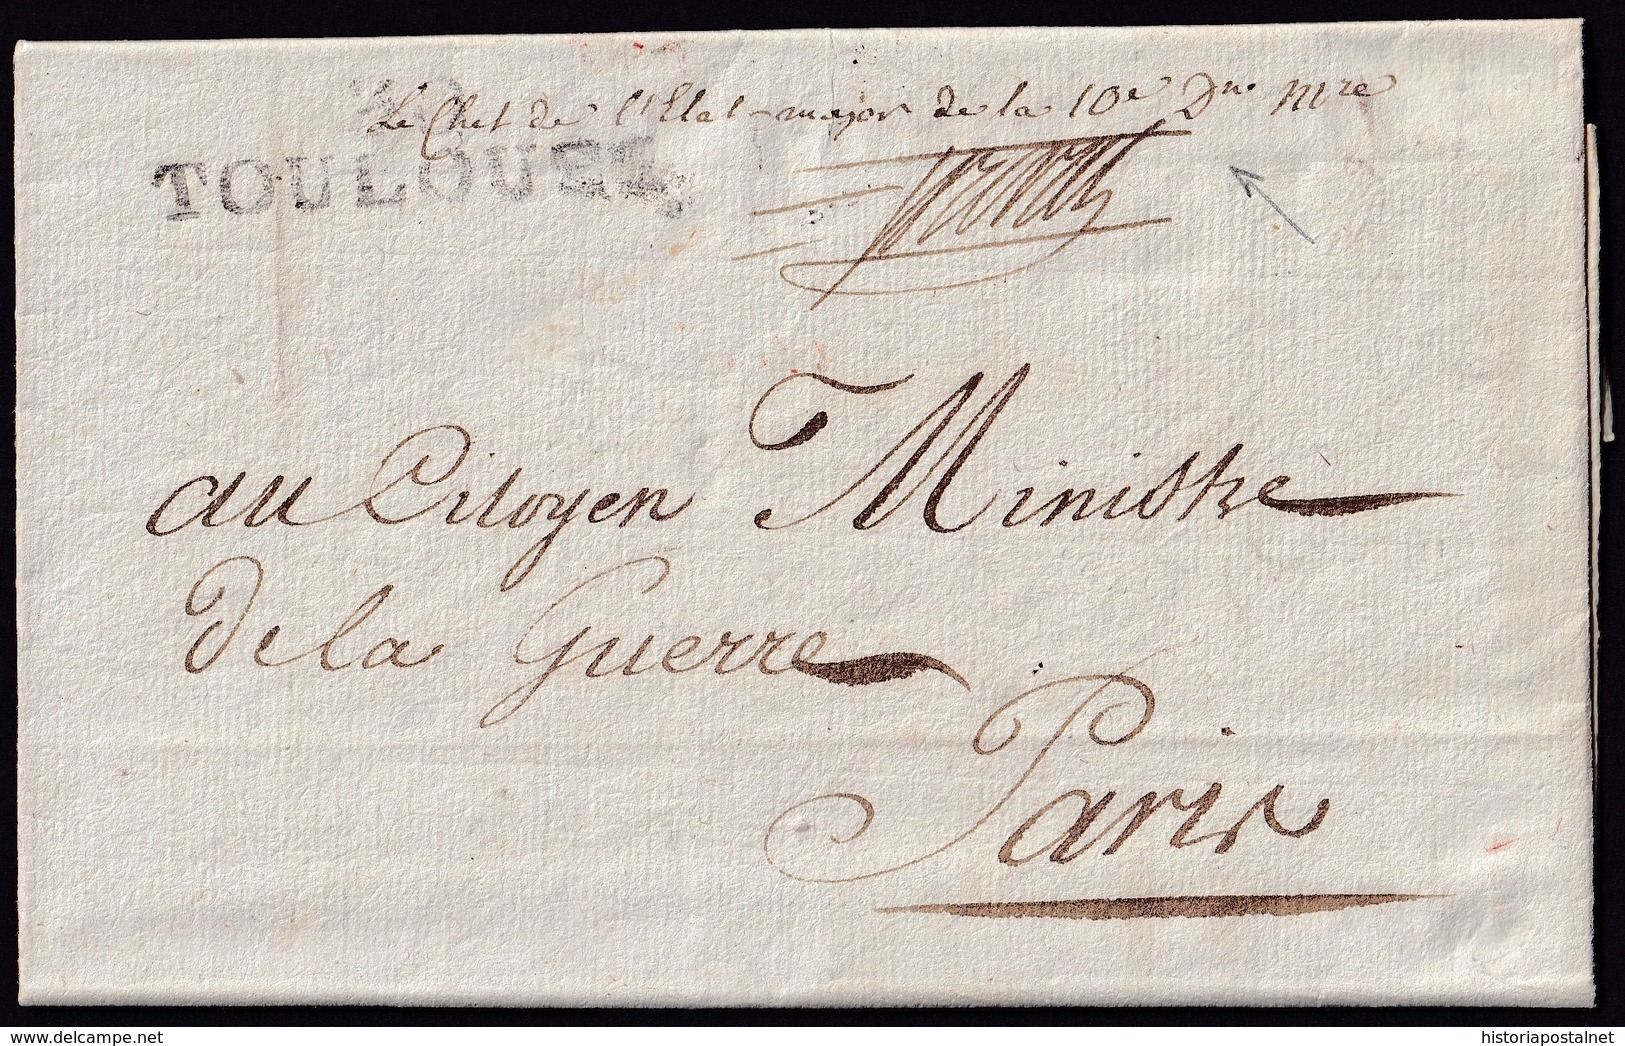 Le Chef de l'Etat-major de la 10e Don Mre
TOULOUSE
au Citoyen Ministre
de la Guerre
Paris
www.delcampe.net
historiapostalnet